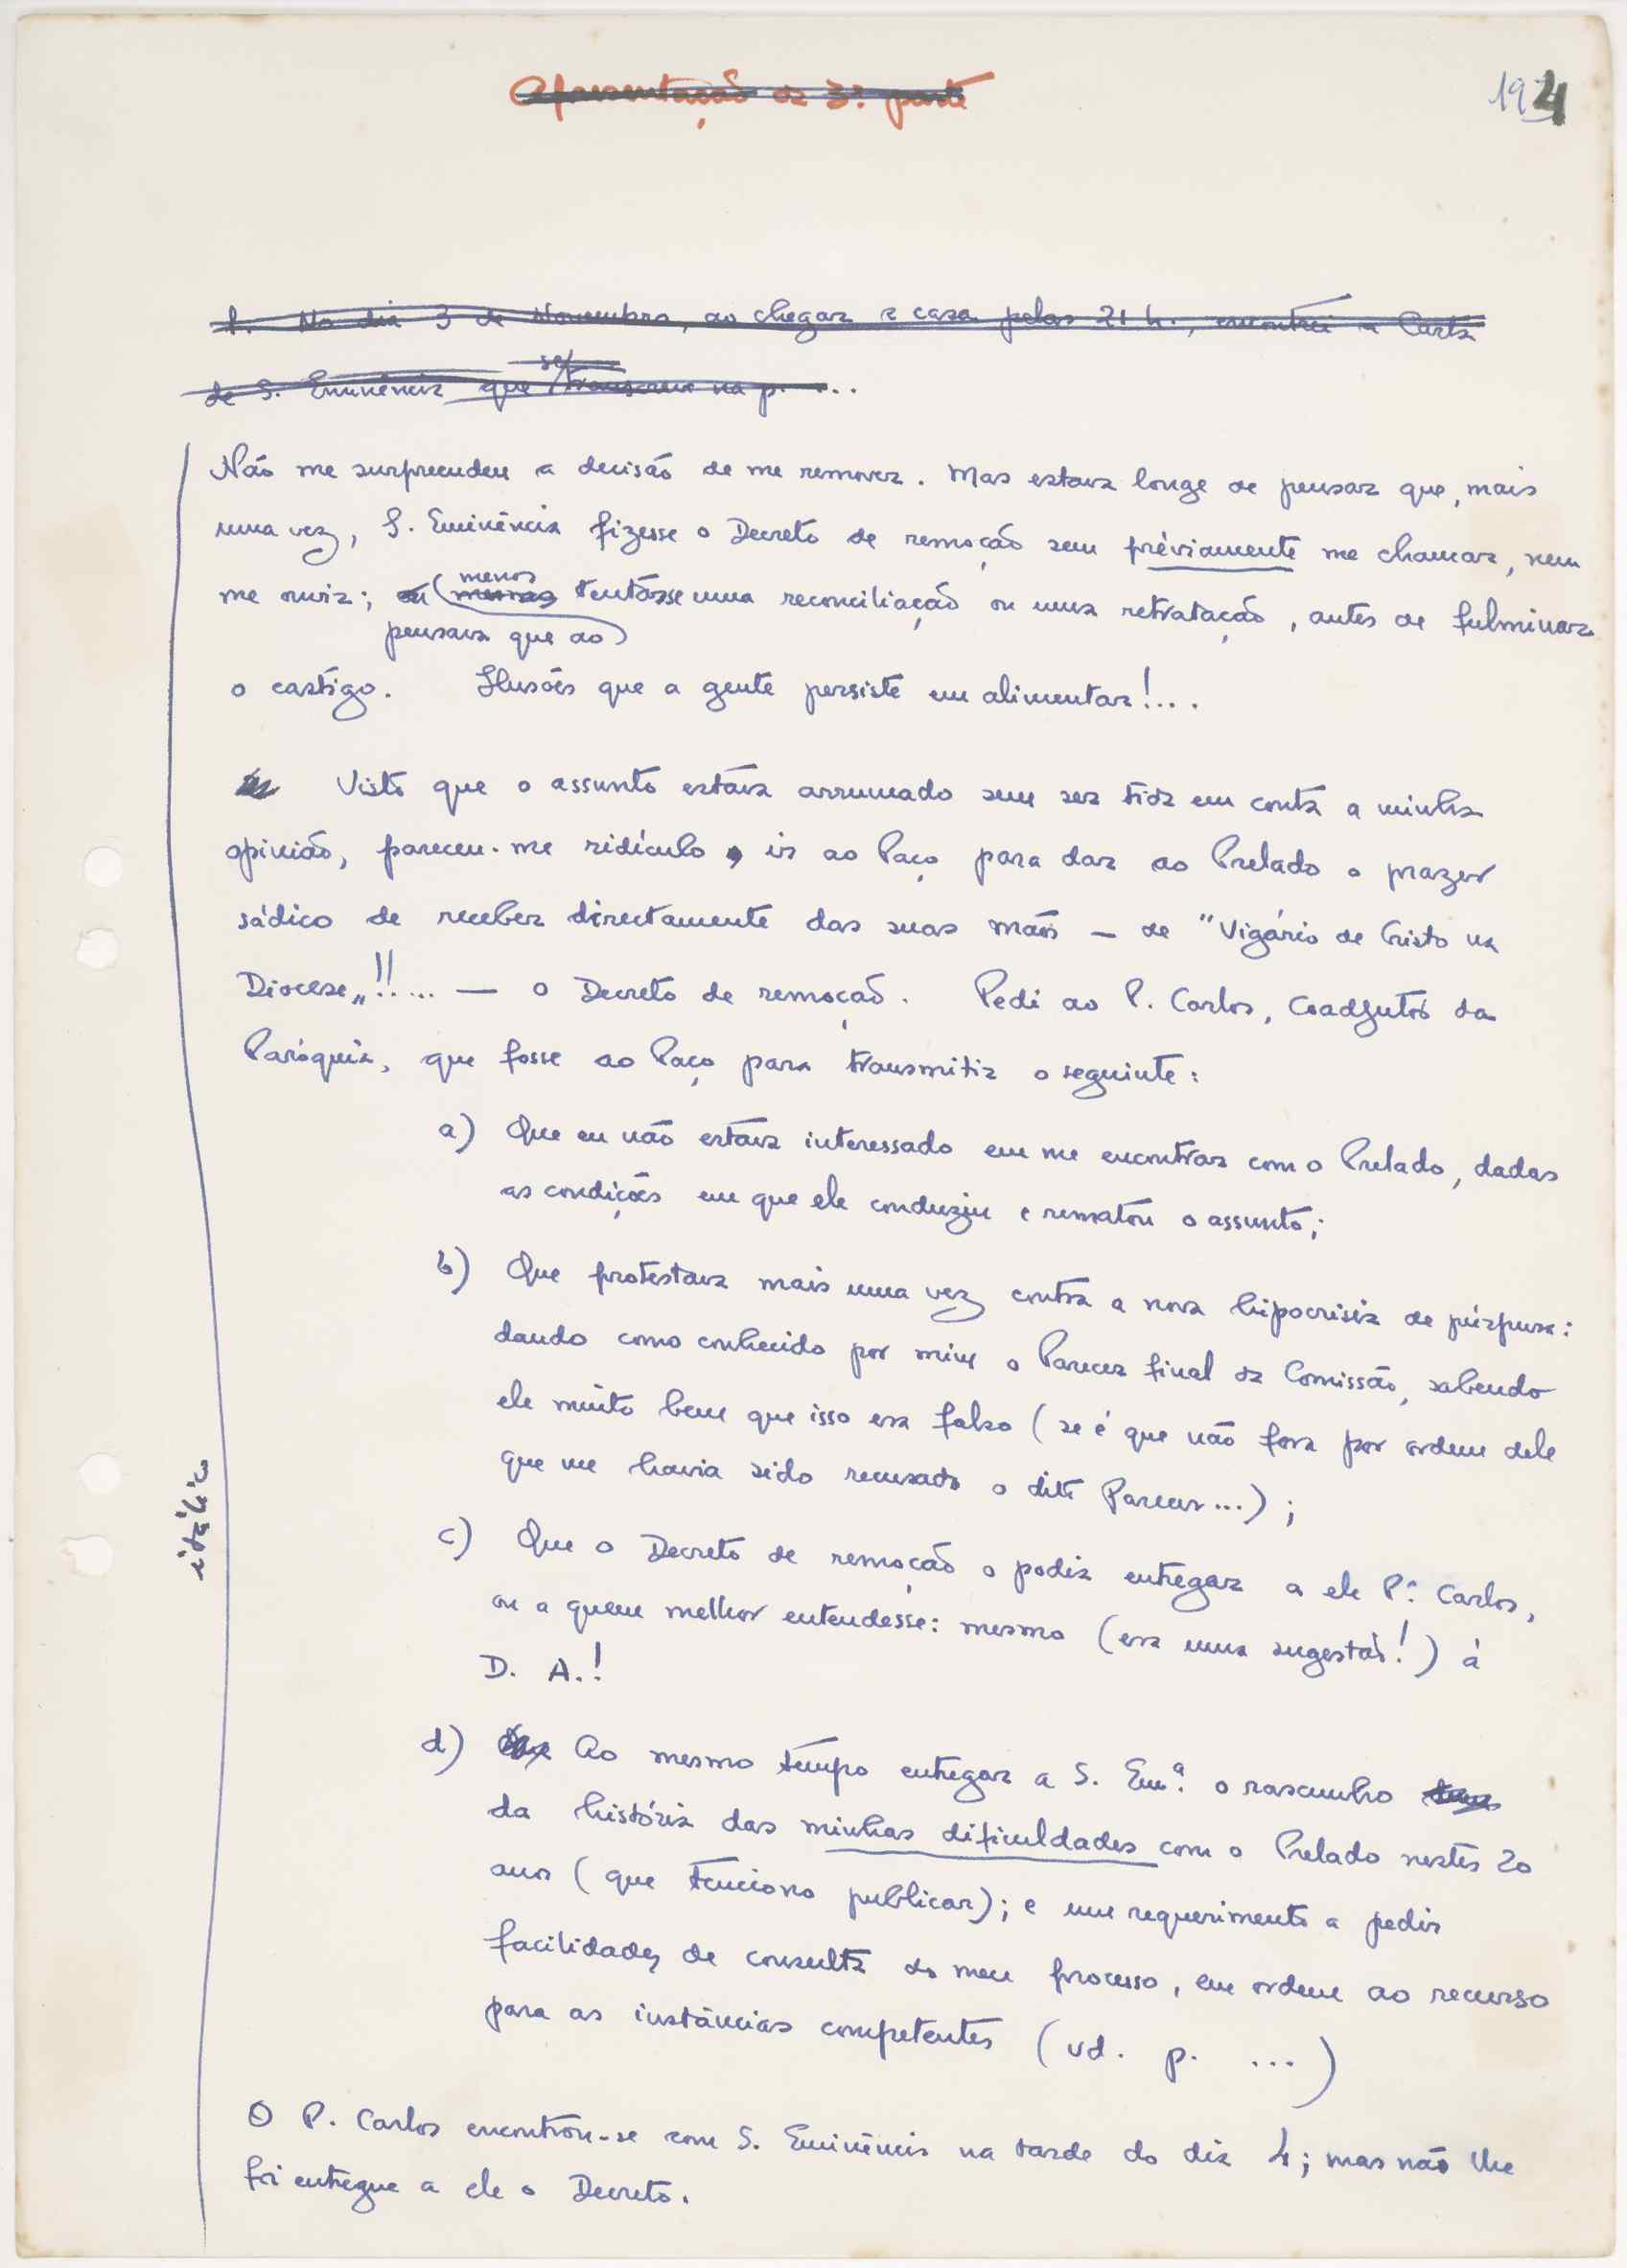 Apresentação da 3ª parte
194
1. No dia 3 de Novembro, ao chegar a casa pelas 21 h., encontrei a Carta
se
de S. Eminência que transcreve na p. ...
Não me surpreendeu a decisão de me remover. Mas estava longe de pensar que, mais
uma vez, S. Eminência fizesse o Decreto de remoção sem préviamente me chamar, nem
menos
me ouvir; tentásse uma reconciliação ou uma retratação, antes de fulminar
pensava que ao
o castigo. Ilusões que a gente persiste em alimentar!...
Visto que o assunto estava arrumado sem ser tida em conta a minha
opinião, pareceu-me ridículo ir ao Paço para dar ao Prelado o prazer
sádico de receber directamente das suas mãos — de "Vigário de Cristo na
Diocese"!!.... — o Decreto de remoção. Pedi ao P. Carlos, Coadjutor da
Paróquia, que fosse ao Paço para transmitir o seguinte:
a) Que eu não estava interessado em me encontrar com o Prelado, dadas
as condições em que ele conduziu e rematou o assunto;
b) Que protestava mais uma vez contra a nova hipocrisia de púrpura:
dando como conhecido por mim o Parecer final da Comissão, sabendo
ele muito bem que isso era falso (se é que não fora por ordem dele
que me havia sido recusado o dito Parecer...);
c) Que o Decreto de remoção o podia entregar a ele P.e Carlos,
ou a quem melhor entendesse: mesmo (era uma sugestão!) à
D. A.!
d) Ao mesmo tempo entregar a S. Em.ª o rascunho
da história das minhas dificuldades com o Prelado nestes 20
anos (que tenciono publicar); e um requerimento a pedir
facilidades de consulta do meu processo, em ordem ao recurso
para as instâncias competentes (vd. p. ...)
O P. Carlos encontrou-se com S. Eminência na tarde do dia 4; mas não lhe
foi entregue a ele o Decreto.
itálico